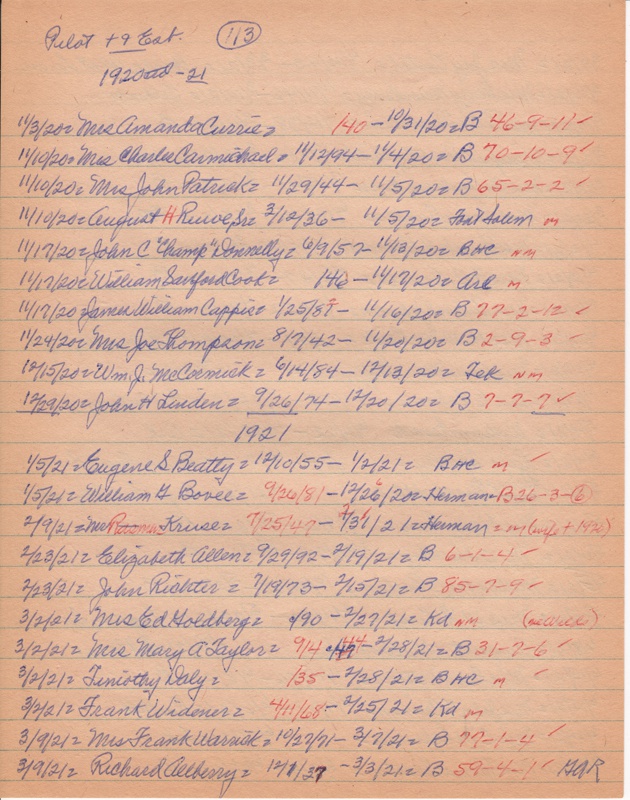 Pilot + 9 Est. 113
1920 - 21
11/3/20= Mrs Amanda Currie= /40 - 10/31/20= B 46-9-11 ✓
11/10/20= Mrs Charles Carmichael = 11/12/94 - 11/4/20= B 70-10-9 ✓
11/10/20= Mrs John Patrick= 11/29/44 - 11/5/20= B 65-2-2 ✓
11/10/20= August H Sr= 3/12/36 - 11/5/20= Font Salem m
11/17/20= John C "Champ" Donnelly= 6/9/57 - 11/13/20= BHC nm
11/17/20= William Sanford Cook= 146 - 11/17/20= m
11/17/20= James William Cappis= 1/25/87 - 11/16/20= B 77-2-12 ✓
11/24/20= Mrs Joe Thompson= 8/7/42 - 11/20/20= B 2-9-3 ✓
12/15/20= Wm. J. McCormick= 6/14/54 - 12/13/20= Tek nm
12/29/20= John H Linden= 9/26/74 - 12/20/20= B 7-7-7 ✓
1921
1/5/21= Eugene S Beatty= 12/10/55 - 1/2/21= BHC m ✓
1/5/21= William G Bovee= 9/26/81 - 12/26/20= Herman - B 26-3-6
2/9/21= Kruse= 7/25/47 - /31/21= Herman = m (wife + 192)
2/23/21= Elizabeth Allen= 9/29/92 - 2/19/21= B 6-1-4 ✓
2/23/21= John Richter= 7/19/73 - 2/15/21= B 85-7-9 ✓
3/2/21= Mrs Ed Goldberg= /90 - 2/27/21= Kd nm
3/2/21= Mrs Mary A Taylor= 9/4 44 - 2/28/21= B 31-7-6 ✓
3/2/21= Timothy Daly= /35 - 2/28/21= BHC m ✓
3/2/21= Frank Widener= 4/11/68 - 2/25/21= Kd m
3/9/21= Mrs Frank Warnick= 10/27/71 - 3/7/21= B 77-1-4 ✓
3/9/21= Richard Allberry= 12/1/37 - 3/3/21= B 59-4-1 ✓ GAR